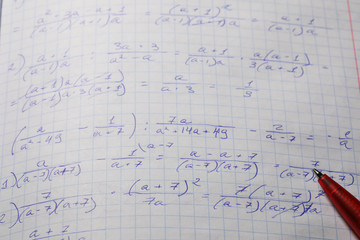 a² - 2a + 1 / (a-1)(a+1)a = (a+1)² / (a-1)(a+1)a = a+1 / (a-1)a
2) a+1 / (a-1)a : 3a+3 / a²-a = a+1 / (a-1)a · a(a-1) / 3(a+1) =
= (a+1)a(a-1) / (a-1)a·3(a+1) = a / a·3 = 1/3
(a / a²-49 - 1 / a+7) : 7a / a²+14a+49 - 2 / a-7 = -1/a
1) a / (a-7)(a+7) - 1 / a+7 \a-7 = a-a+7 / (a-7)(a+7) = 7 / (a-7)(a+7)
2) 7 / (a-7)(a+7) · (a+7)² / 7a = 7(a+7)² / (a-7)(a+7)7a
a+7